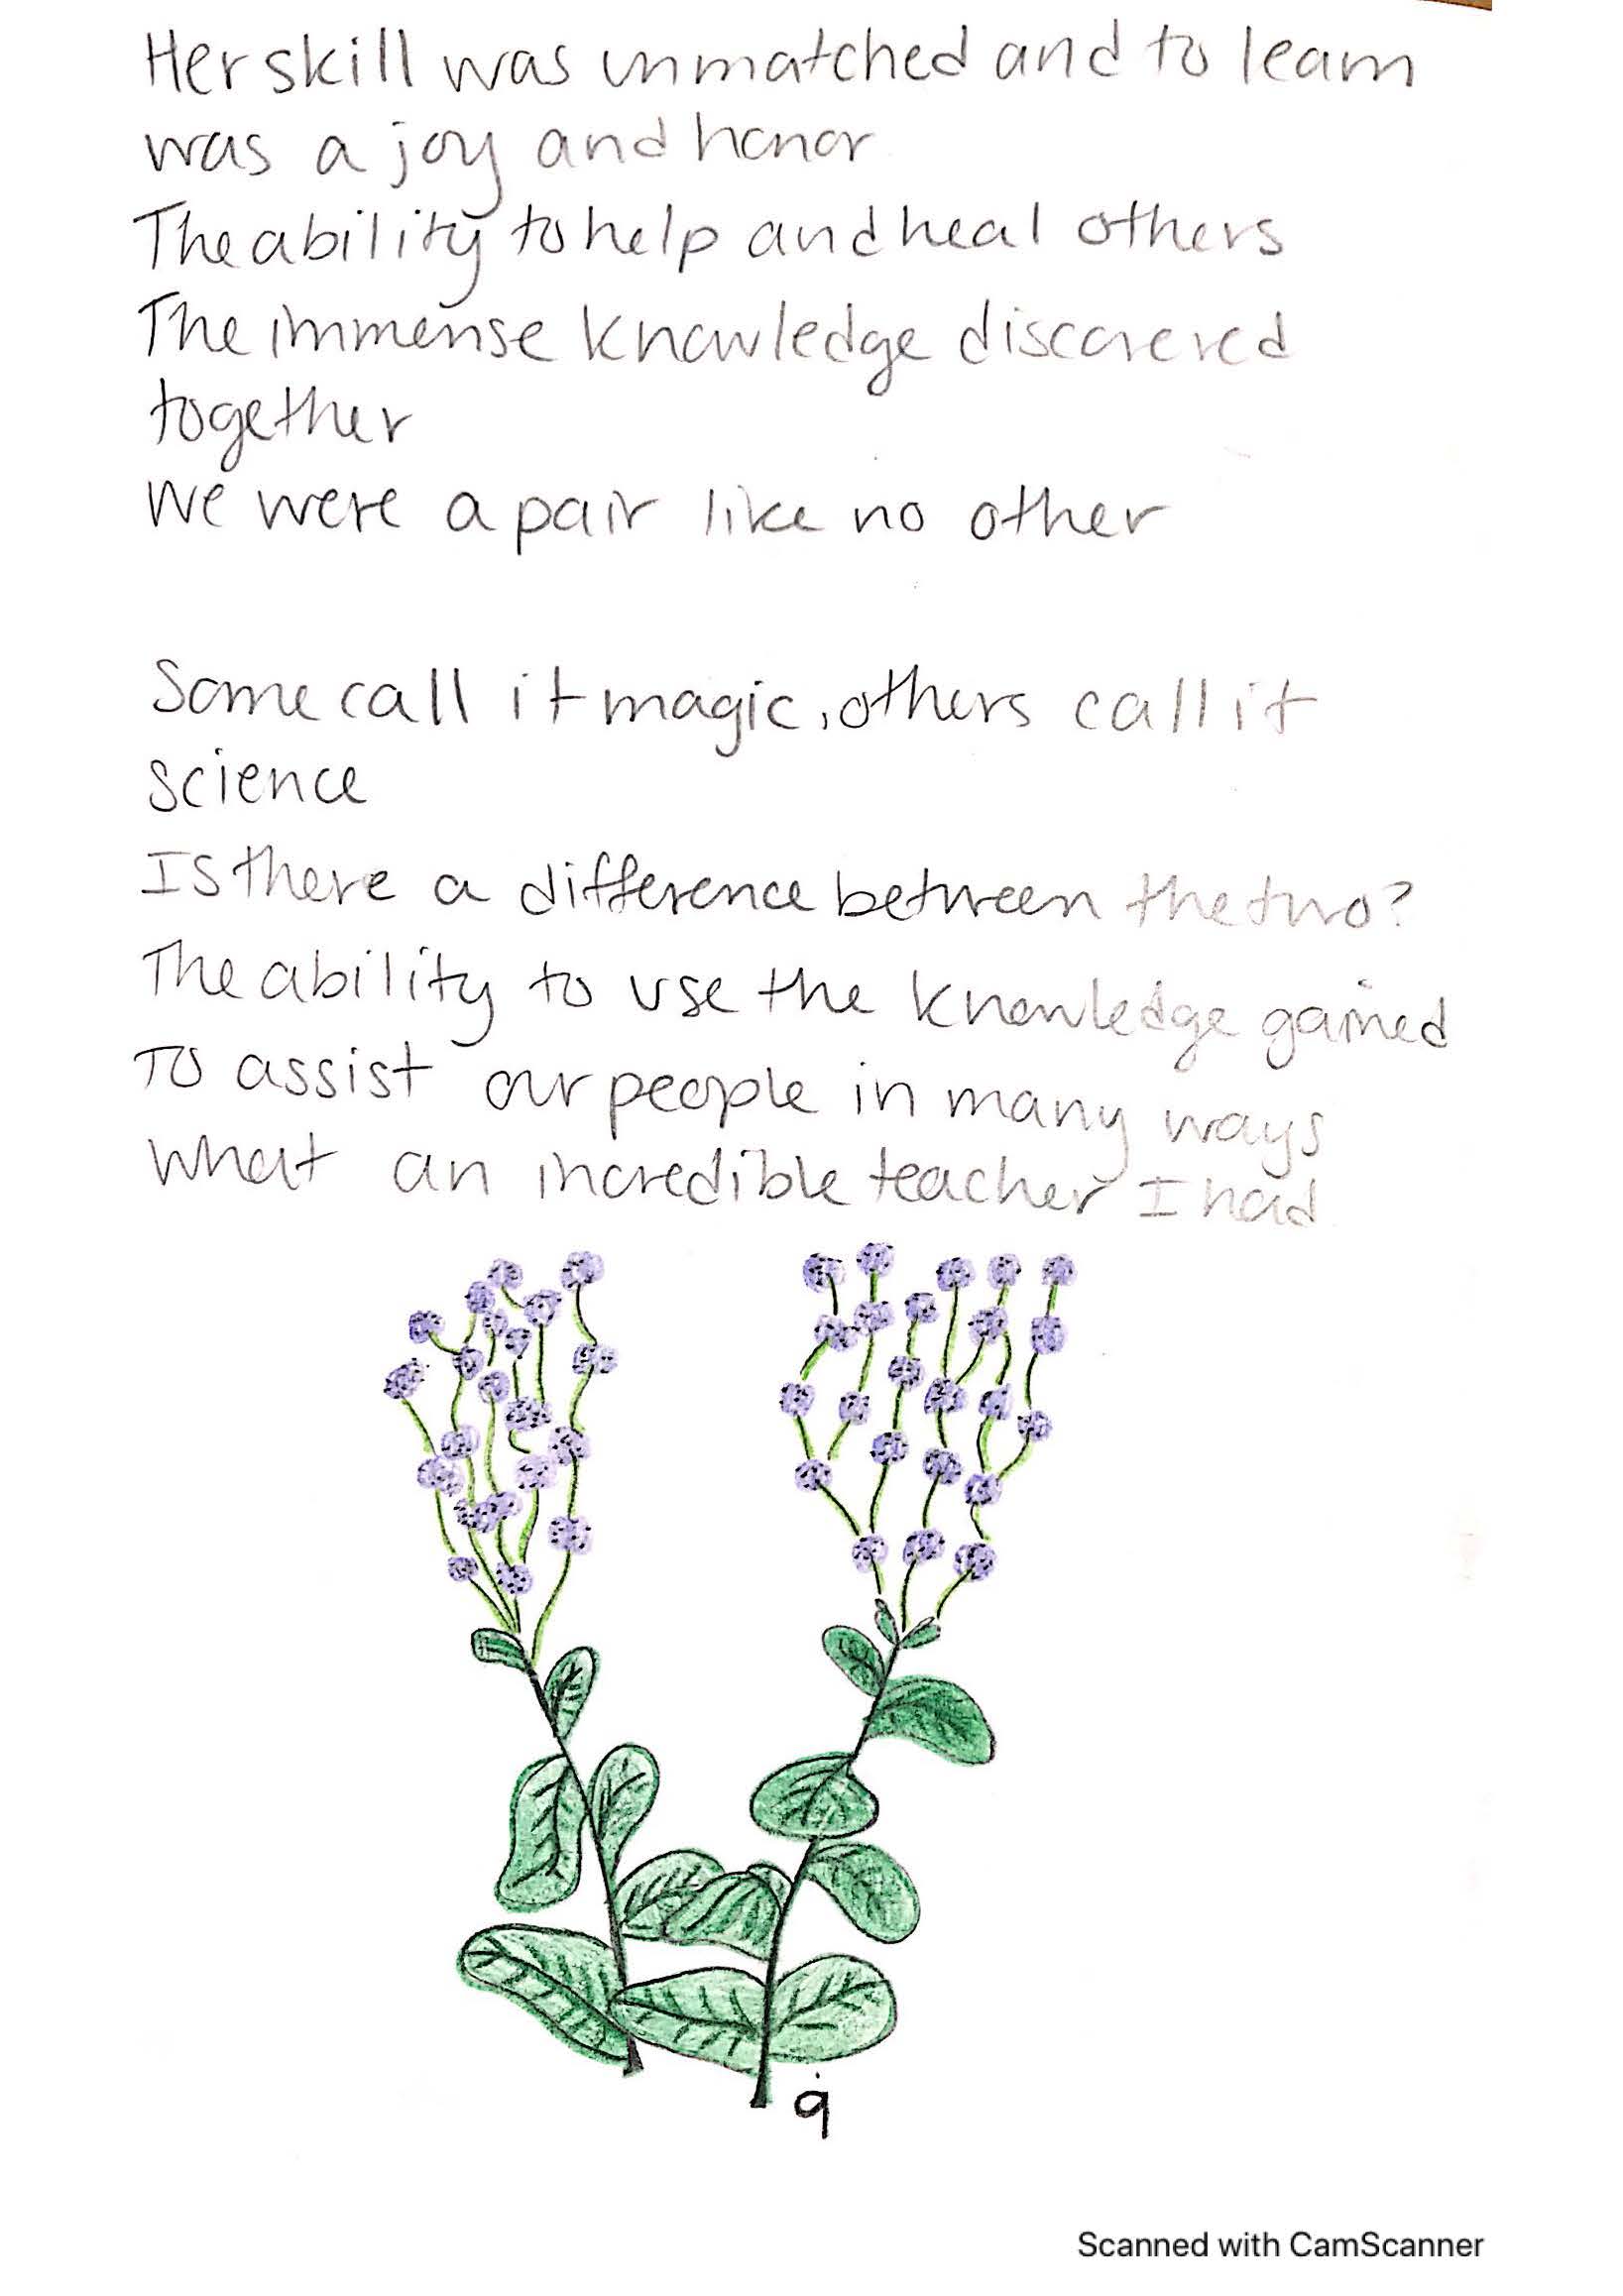 Her skill was unmatched and to learn
was a joy and honor
The ability to help and heal others
The immense knowledge discovered
together
We were a pair like no other
Some call it magic, others call it
science
Is there a difference between the two?
The ability to use the knowledge gained
To assist our people in many ways
What an incredible teacher I had
9
Scanned with CamScanner